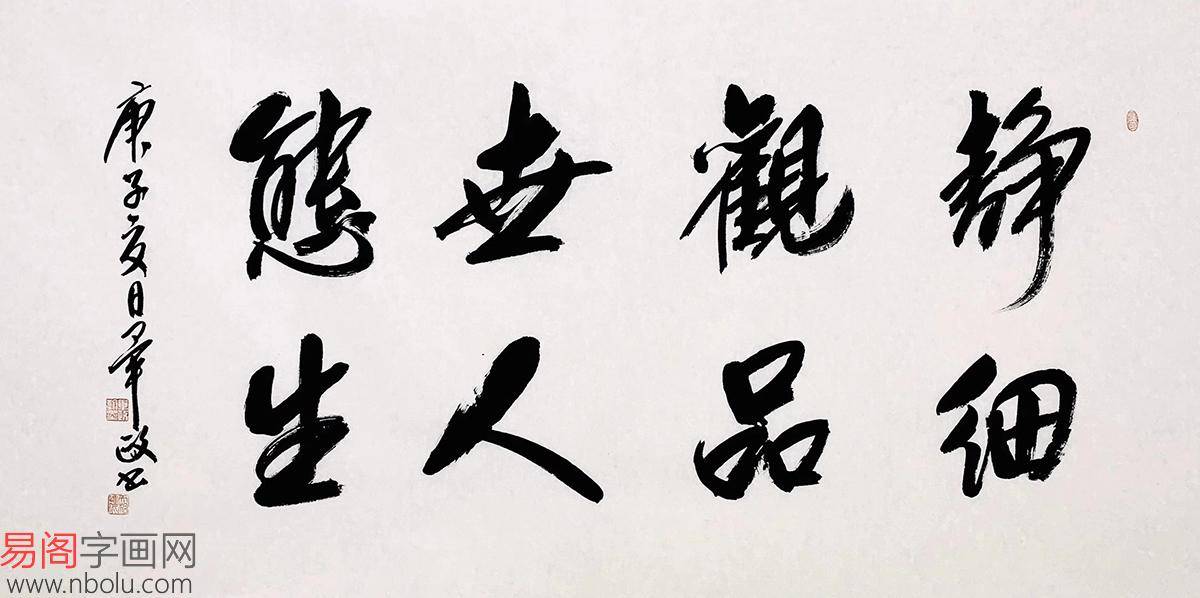 靜觀世態
細品人生
庚子夏日
易阁字画网
www.nbolu.com